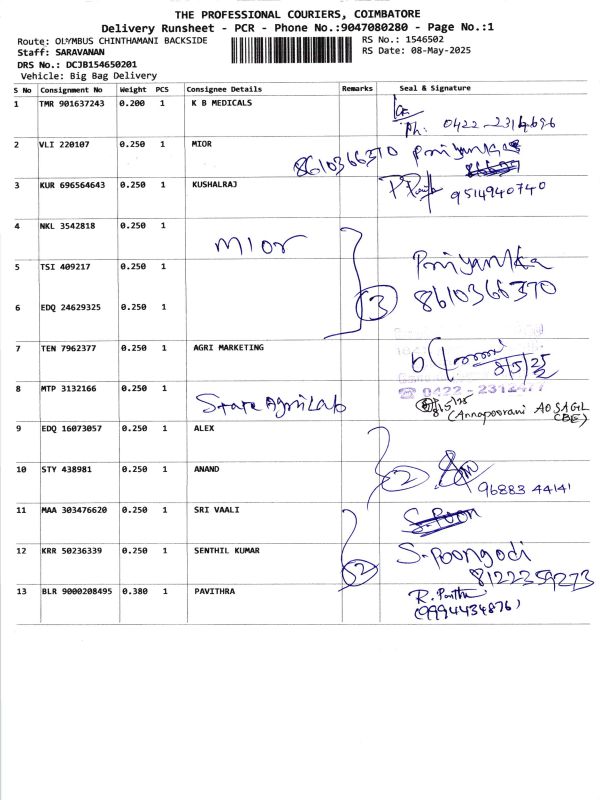 THE PROFESSIONAL COURIERS, COIMBATORE
Delivery Runsheet - PCR - Phone No.:9047080280 - Page No.:1
Route: OLYMBUS CHINTHAMANI BACKSIDE
RS No.: 1546502
Staff: SARAVANAN
RS Date: 08-May-2025
DRS No.: DCJB154650201
Vehicle: Big Bag Delivery
S No Consignment No Weight PCS Consignee Details Remarks Seal & Signature
1 TMR 901637243 0.200 1 K B MEDICALS
Ph: 0422-2314696
2 VLI 220107 0.250 1 MIOR 8610366370 Priyanka
3 KUR 696564643 0.250 1 KUSHALRAJ 9514940740
4 NKL 3542818 0.250 1
MIOR
5 TSI 409217 0.250 1 Priyanka
6 EDQ 24629325 0.250 1 3 8610366370
7 TEN 7962377 0.250 1 AGRI MARKETING
8/5/25
8 MTP 3132166 0.250 1 State Agri Lab
8/5/25
(Annapoorani AO SAGL CBE)
9 EDQ 16073057 0.250 1 ALEX
10 STY 438981 0.250 1 ANAND 2 96883 44141
11 MAA 303476620 0.250 1 SRI VAALI
12 KRR 50236339 0.250 1 SENTHIL KUMAR 2 S. Poongodi
8122259273
13 BLR 9000208495 0.380 1 PAVITHRA
(9994434876)